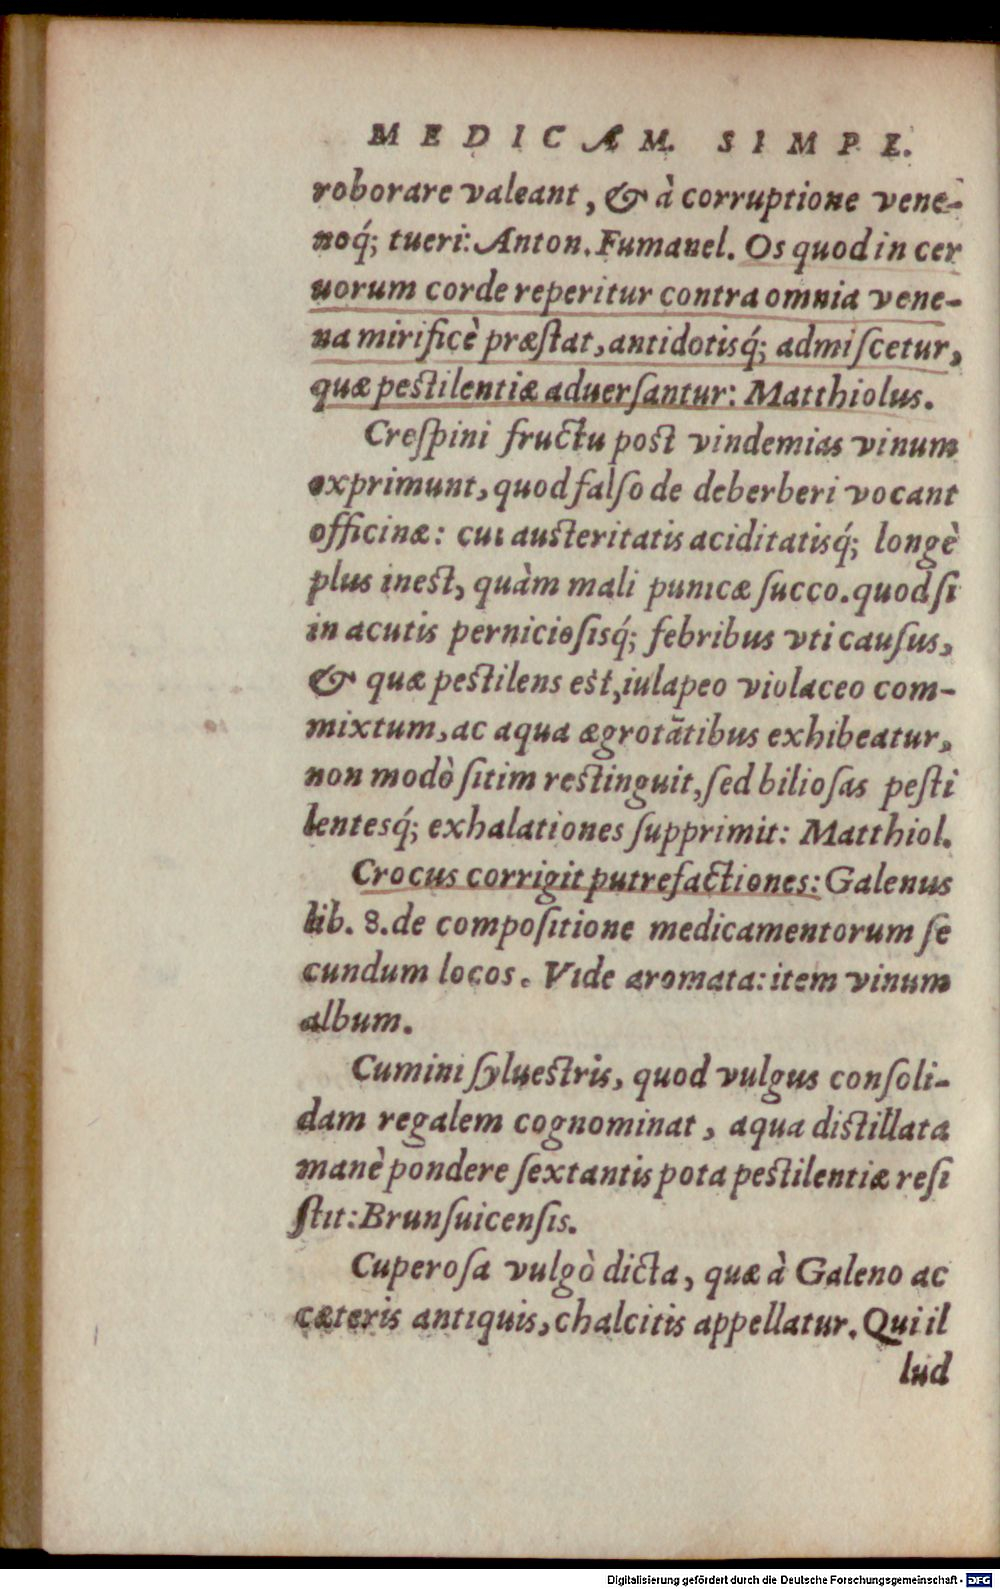 MEDICÆM. SIMPL.
roborare valeant, & à corruptione vene-
noq́; tueri: Anton. Fumanel. Os quod in cer
uorum corde reperitur contra omnia vene-
na mirificè præſtat, antidotisq́; admiſcetur,
quæ peſtilentiæ aduerſantur: Matthiolus.
Creſpini fructu poſt vindemias vinum
exprimunt, quod falſo de deberberi vocant
officinæ: cui auſteritatis aciditatisq́; longè
plus ineſt, quàm mali punicæ ſucco. quod ſi
in acutis pernicioſisq́; febribus vti cauſus,
& quæ peſtilens eſt, iulapeo violaceo com-
mixtum, ac aqua ægrotātibus exhibeatur,
non modò ſitim reſtinguit, ſed bilioſas peſti
lentesq́; exhalationes ſupprimit: Matthiol.
Crocus corrigit putrefactiones: Galenus
lib. 8. de compoſitione medicamentorum ſe
cundum locos. Vide aromata: item vinum
album.
Cumini ſylueſtris, quod vulgus conſoli-
dam regalem cognominat, aqua diſtillata
manè pondere ſextantis pota peſtilentiæ reſi
ſtit: Brunſuicenſis.
Cuperoſa vulgò dicta, quæ à Galeno ac
cæteris antiquis, chalcitis appellatur. Qui il
lud
Digitalisierung gefördert durch die Deutsche Forschungsgemeinschaft - DFG